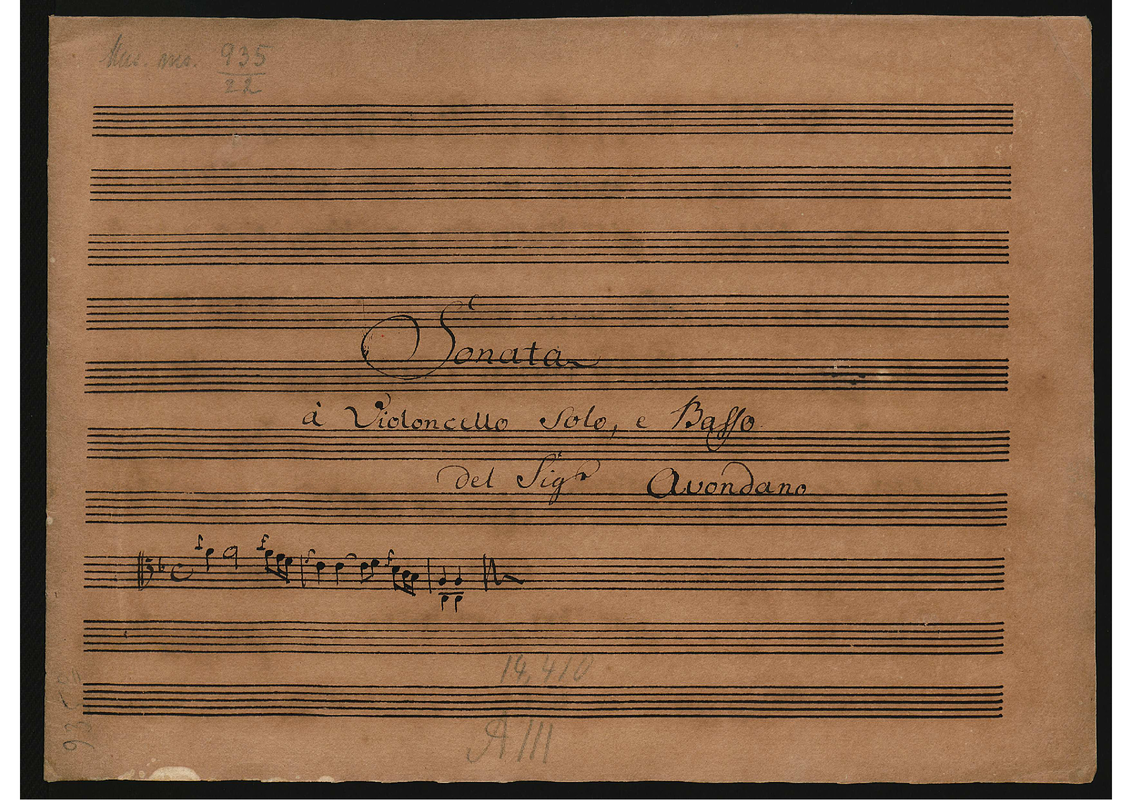 Mus. ms. 935
22
Sonata
à Violoncello Solo, e Basso
del Sigr Avondano
14,410
A III